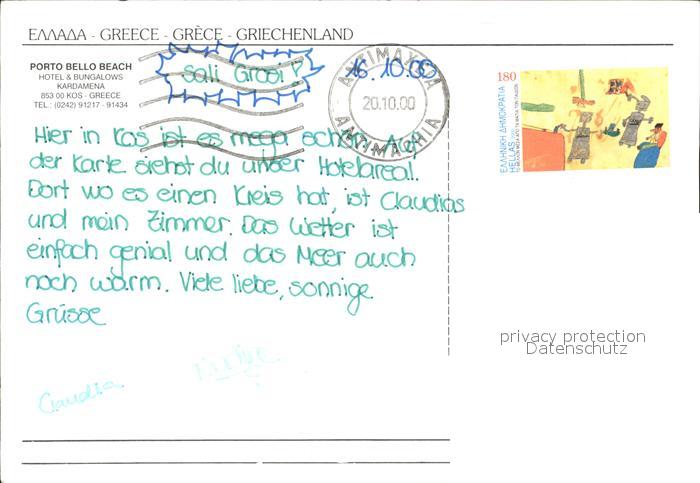 ΕΛΛΑΔΑ - GREECE - GRÈCE - GRIECHENLAND
PORTO BELLO BEACH
HOTEL & BUNGALOWS
KARDAMENA
853 00 KOS - GREECE
TEL.: (0242) 91217 - 91434
Sali Grosi!
16.10.00
ΑΝΤΙΜΑΧΕΙΑ
20.10.00
ANTIMACHIA
180
ΕΛΛΗΝΙΚΗ ΔΗΜΟΚΡΑΤΙΑ
HELLAS
Hier in Kos ist es mega schön. Auf
der Karte siehst du unser Hotelareal.
Dort wo es einen Kreis hat, ist Claudias
und mein Zimmer. Das Wetter ist
einfach genial und das Meer auch
noch warm. Viele liebe, sonnige
Grüsse
Claudia
privacy protection
Datenschutz